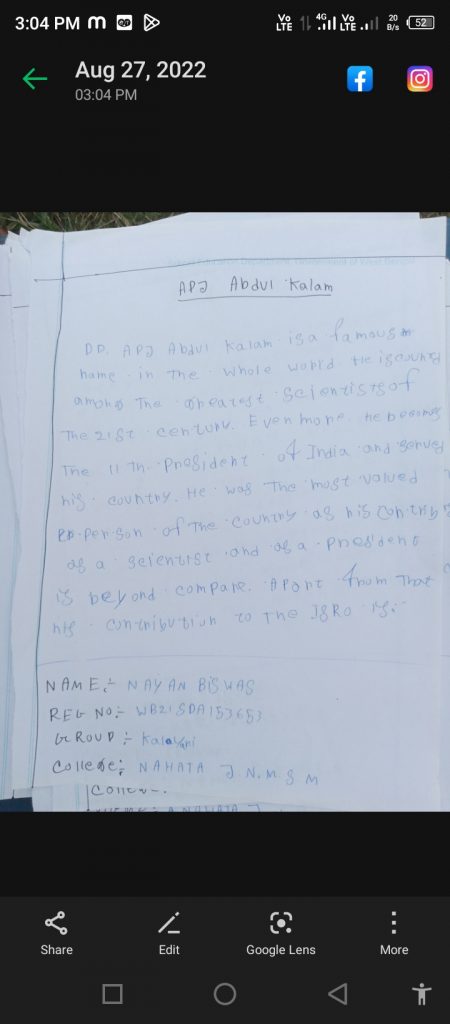 3:04 PM
Vo LTE 4G Vo LTE 20 B/s 52
Aug 27, 2022
03:04 PM
APJ Abdul Kalam
DR. APJ Abdul Kalam is a famous
name in the whole world. He is
among the greatest scientists of
The 21st century. Even more. He becomes
The 11 Th. President of India and served
his country. He was The most valued
person of The country as his
as a scientist and as a President
is beyond compare. Apart from That
his contribution to The ISRO is.
NAME:- NAYAN BISWAS
REG NO:- WB21SDA153653
GROUP :- Kalayani
College:- NAHATA J N.M S M
Share
Edit
Google Lens
More